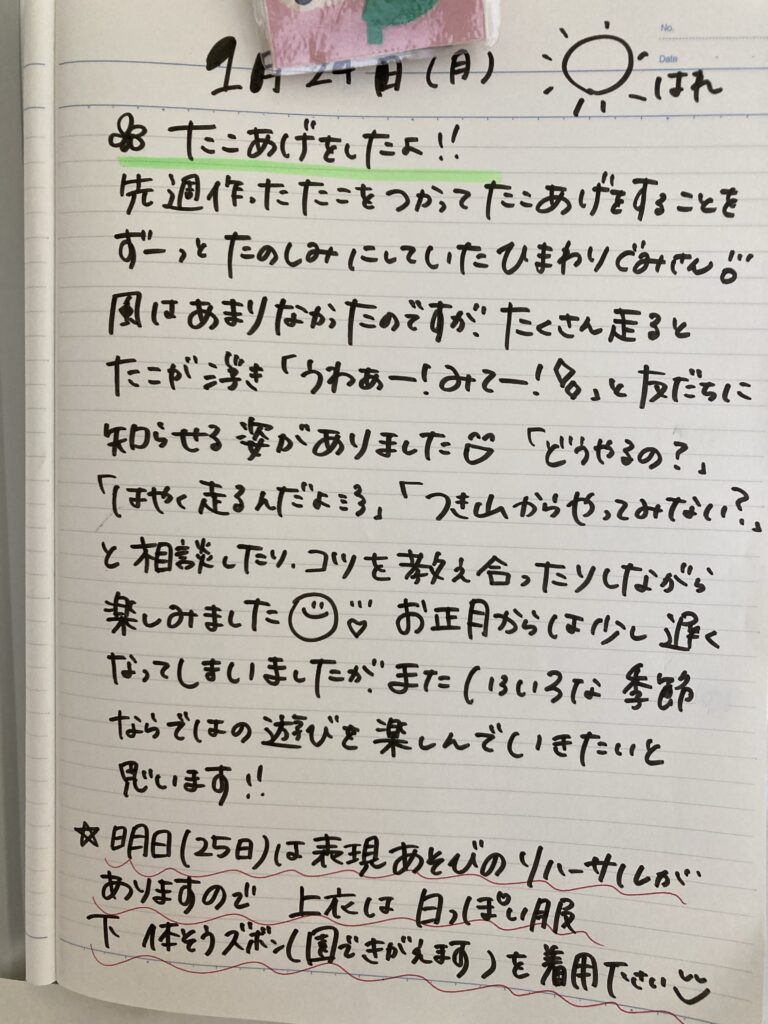 1月24日(月) はれ
No.
Date
たこあげをしたよ!!
先週作ったたこをつかってたこあげをすることを
ずーっとたのしみにしていたひまわりぐみさん
風はあまりなかったのですが、たくさん走ると
たこが浮き「うわぁー!みてー!」と友だちに
知らせる姿がありました「どうやるの?」
「はやく走るんだよ」「つき山からやってみない?」
と相談したり、コツを教え合ったりしながら
楽しみました お正月からは少し遅く
なってしまいましたが、またいろいろな季節
ならではの遊びを楽しんでいきたいと
思います!!
☆明日(25日)は表現あそびのリハーサルが
ありますので 上衣は白っぽい服
下 体そうズボン(園できがえます)を着用下さい